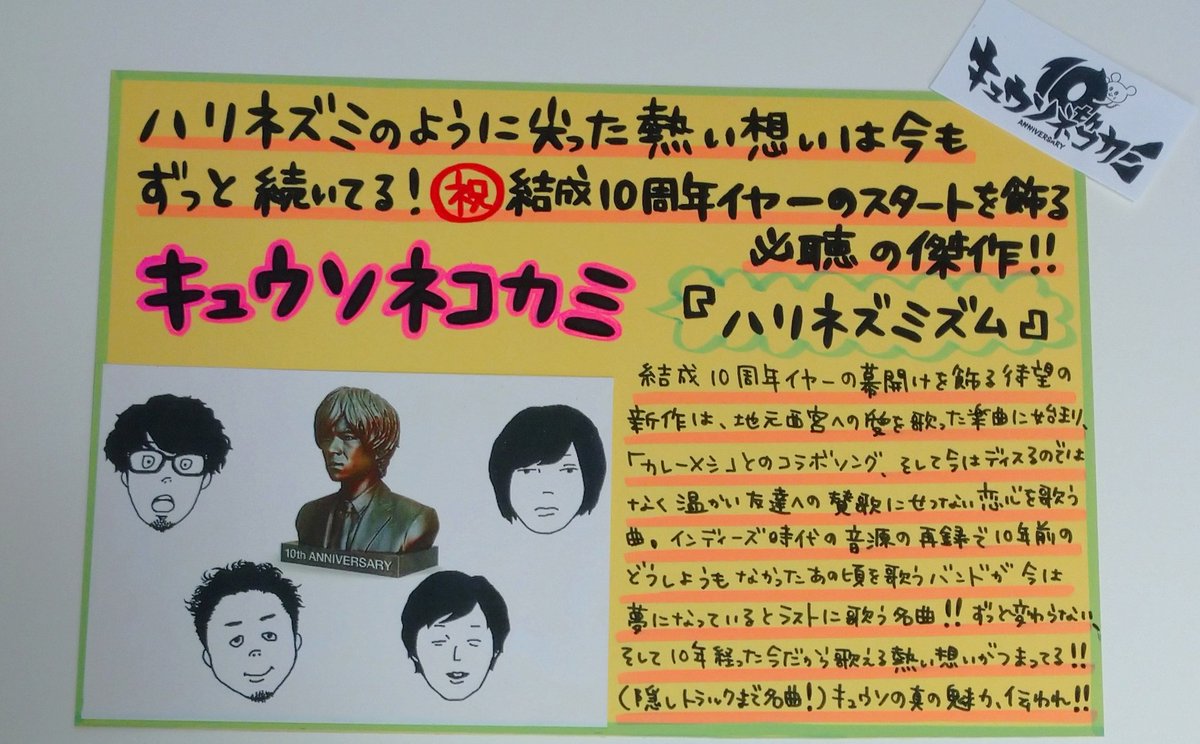 ハリネズミのように尖った熱い想いは今も
ずっと続いてる！㊗結成10周年イヤーのスタートを飾る
必聴の傑作!!
キュウソネコカミ
『ハリネズミズム』
結成10周年イヤーの幕開けを飾る待望の
新作は、地元西宮への愛を歌った楽曲に始まり、
「カレーメシ」とのコラボソング、そして今はディスるのでは
なく温かい友達への賛歌にせつない恋心を歌う
曲。インディーズ時代の音源の再録で10年前の
どうしようもなかったあの頃を歌うバンドが今は
夢になっているとラストに歌う名曲!!ずっと変わらない、
そして10年経った今だから歌える熱い想いがつまってる!!
(隠しトラックまで名曲！)キュウソの真の魅力、伝われ!!
10th ANNIVERSARY
キュウソネコカミ
10
ANNIVERSARY